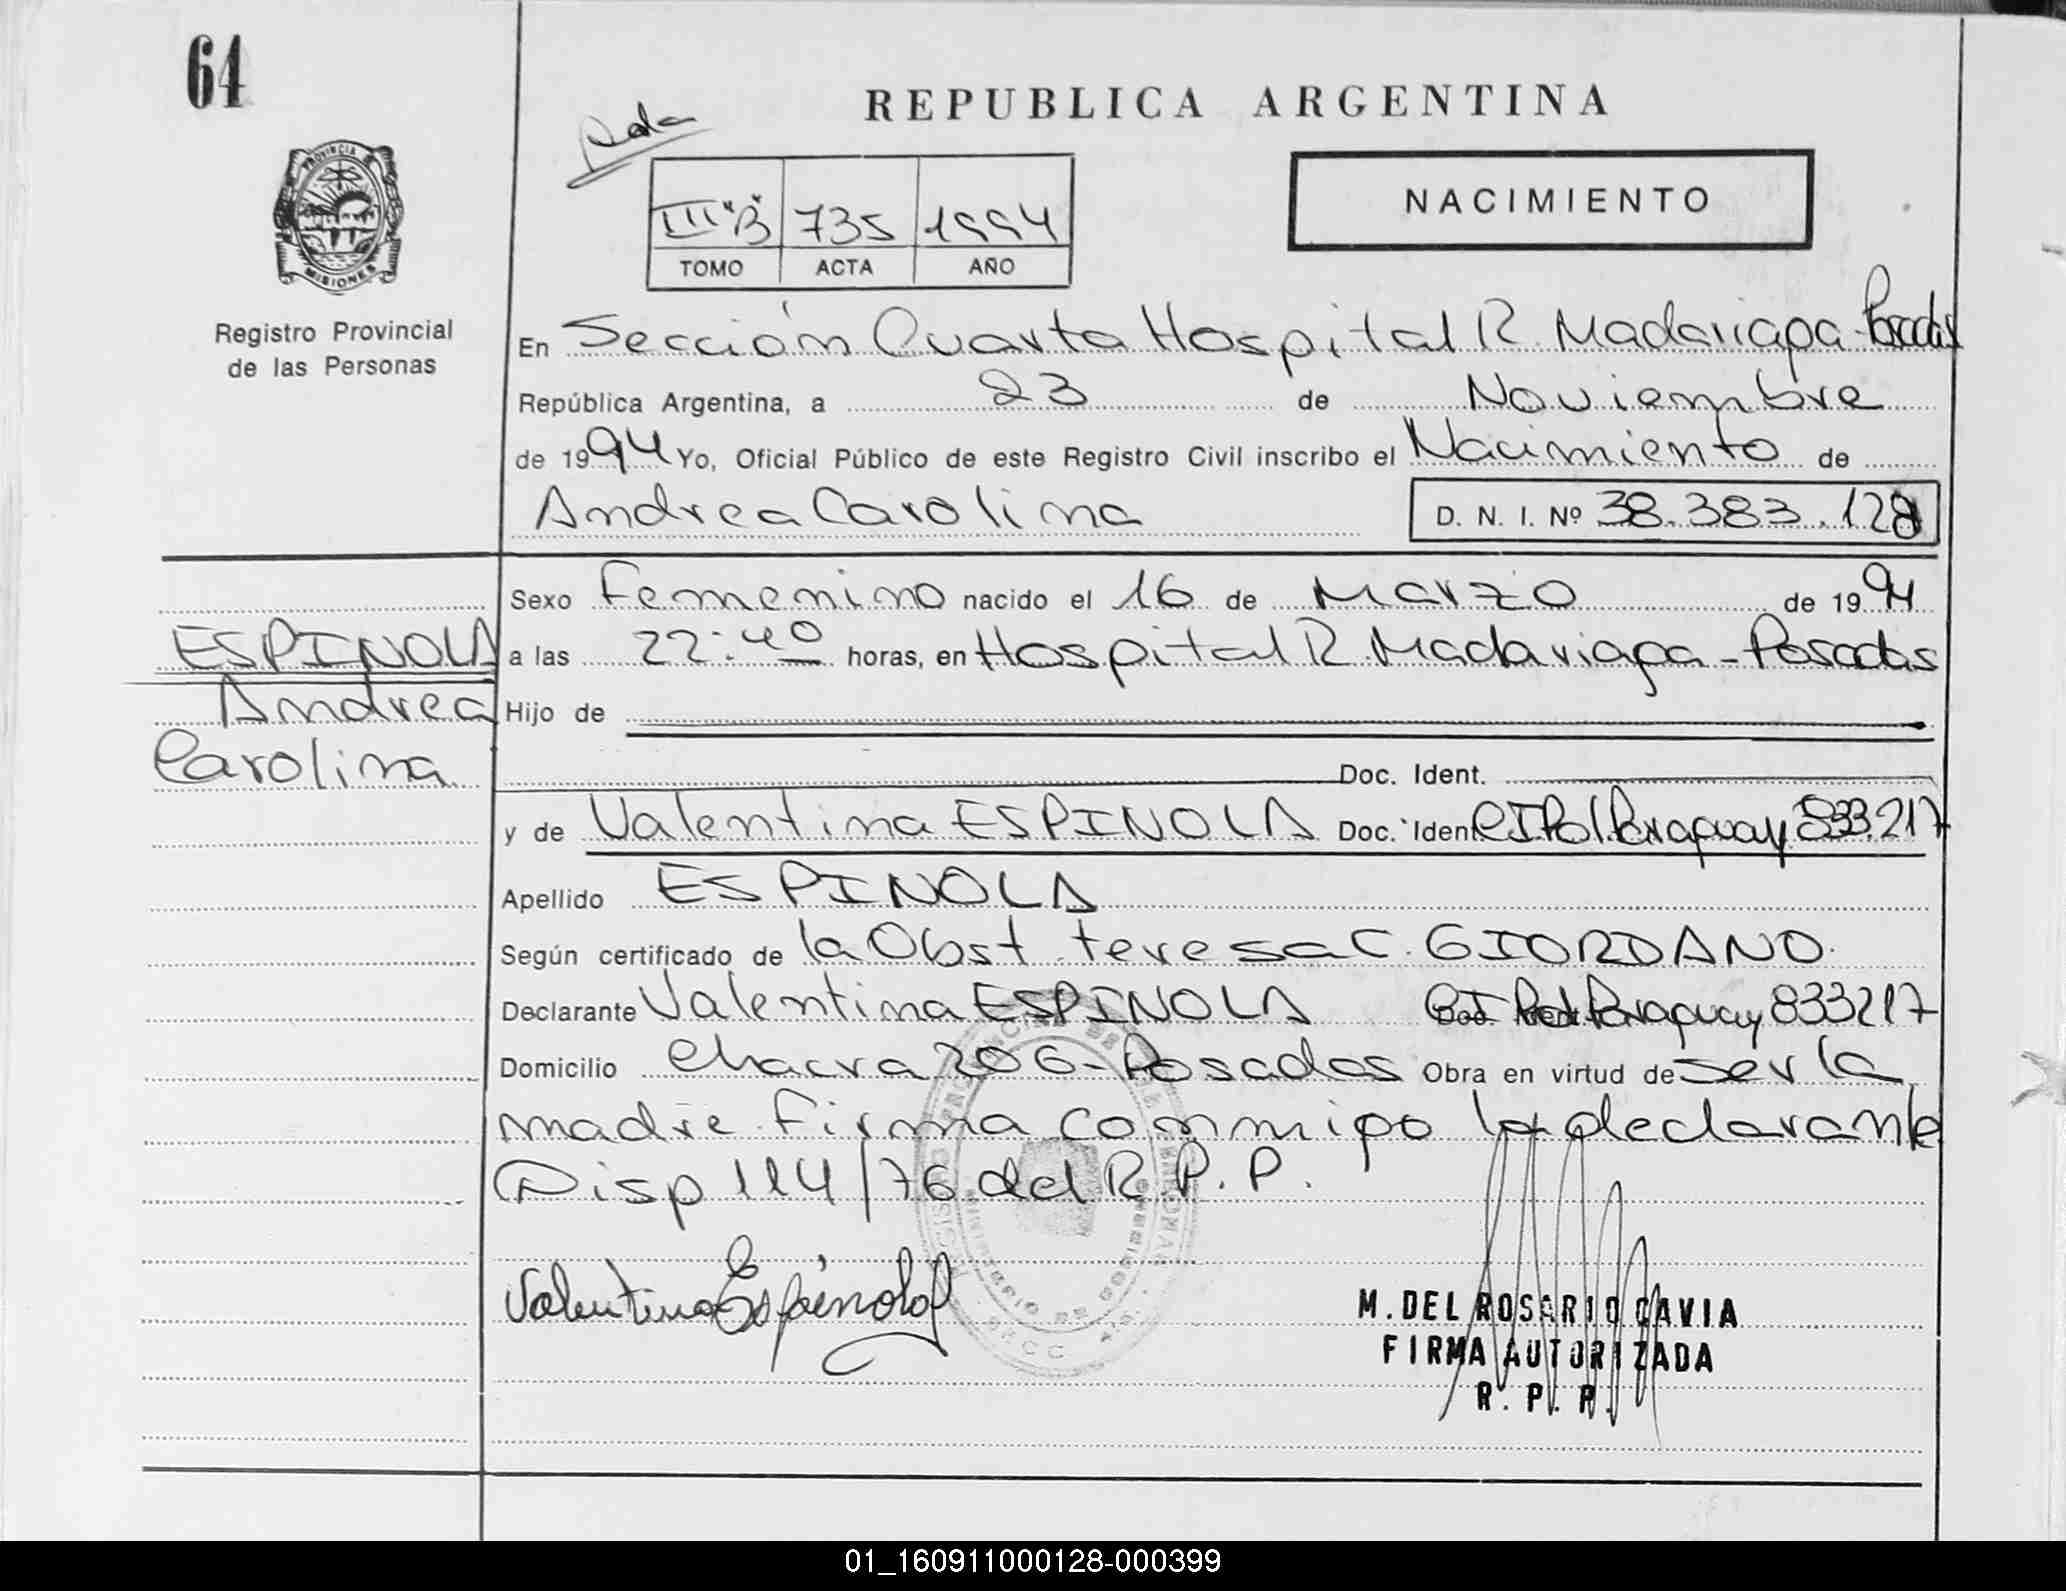 64
REPUBLICA ARGENTINA
NACIMIENTO
PROVINCIA
MISIONES
Registro Provincial
de las Personas
III "B" 735 1994
TOMO ACTA AÑO
En Sección Cuarta Hospital R. Madariaga - Posadas
República Argentina, a 23 de Noviembre
de 1994 Yo, Oficial Público de este Registro Civil inscribo el Nacimiento de
Andrea Carolina D. N. I. Nº 38.383.128
Sexo Femenino nacido el 16 de Marzo de 1994
ESPINOLA
a las 22:40 horas, en Hospital R. Madariaga - Posadas
Andrea
Hijo de
Carolina
Doc. Ident.
y de Valentina ESPINOLA Doc. Ident. CI Pol Paraguay 833.217
Apellido ESPINOLA
Según certificado de la Obst. teresa C. GIORDANO.
Declarante Valentina ESPINOLA Paraguay 833217
Domicilio Chacra 206 - Posadas Obra en virtud de ser la
madre. firma conmigo la declarante
Disp 114/76 del R.P.P.
Valentina Espinola
M. DEL ROSARIO GAVIA
FIRMA AUTORIZADA
R. P. P.
01_160911000128-000399